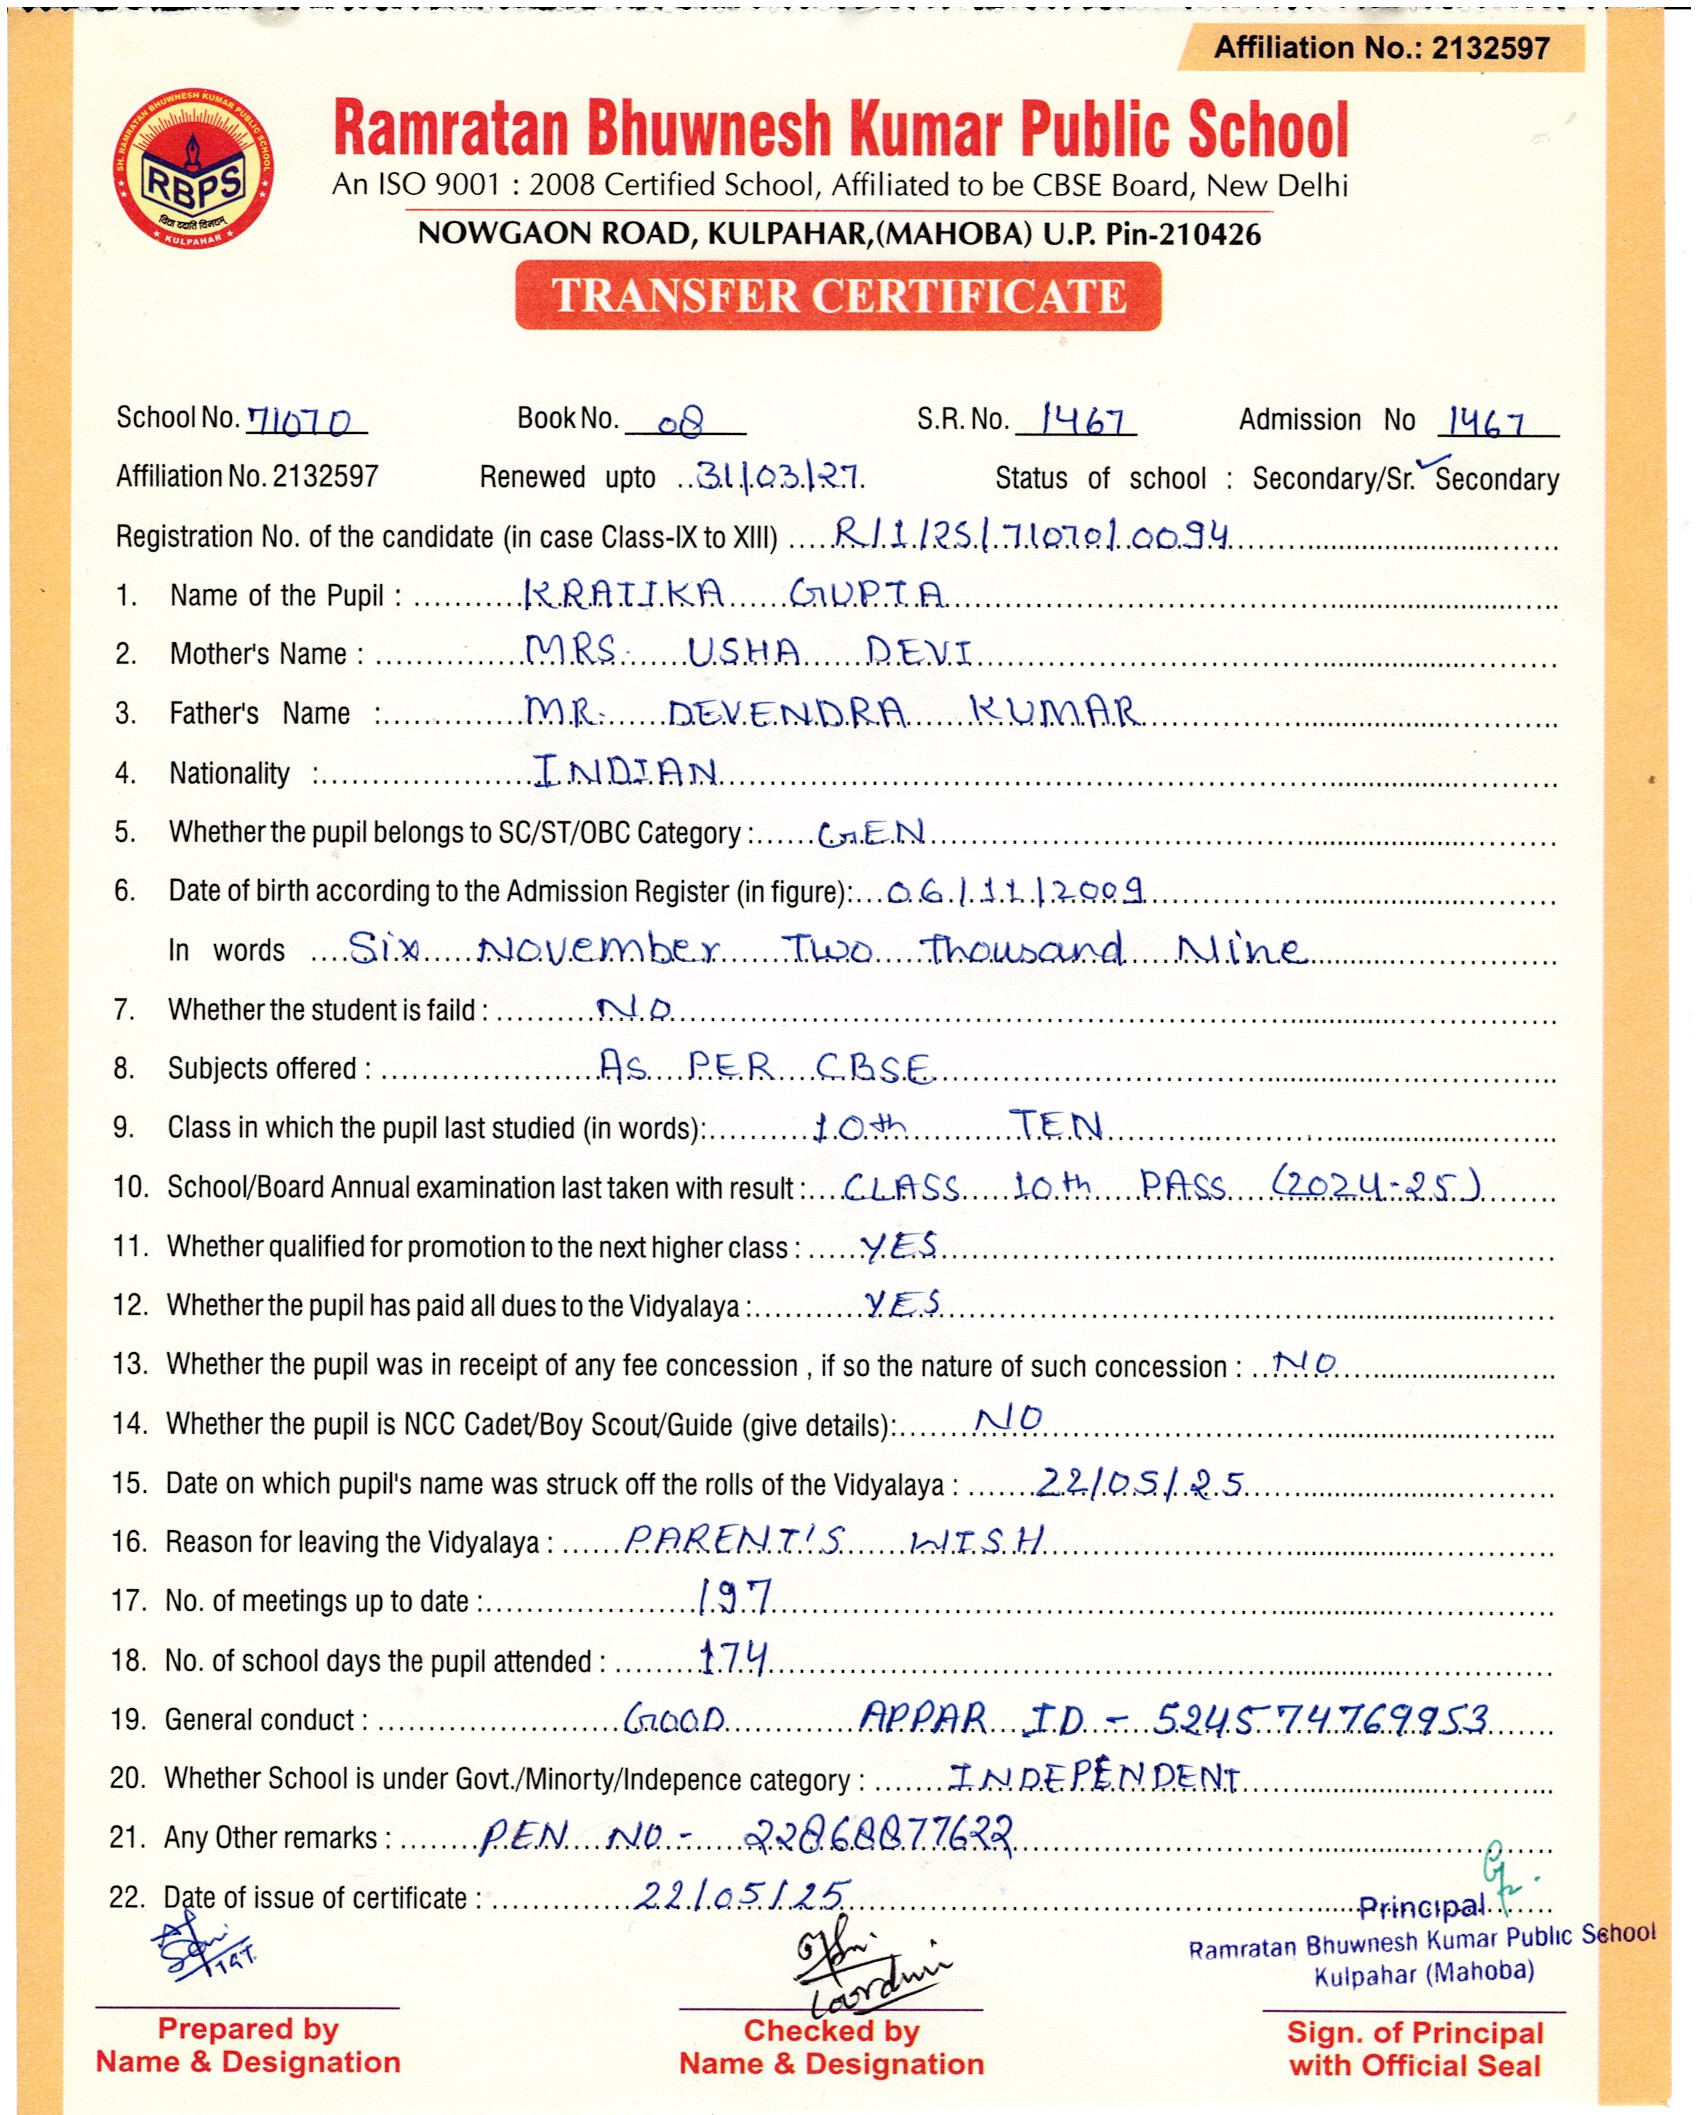 Affiliation No.: 2132597
SH. RAMRATAN BHUWNESH KUMAR PUBLIC SCHOOL
RBPS
विद्या ददाति विनयम्
KULPAHAR
Ramratan Bhuwnesh Kumar Public School
An ISO 9001 : 2008 Certified School, Affiliated to be CBSE Board, New Delhi
NOWGAON ROAD, KULPAHAR,(MAHOBA) U.P. Pin-210426
TRANSFER CERTIFICATE
School No. 71070 Book No. 08 S.R. No. 1467 Admission No 1467
Affiliation No. 2132597 Renewed upto 31/03/27. Status of school : Secondary/Sr. ✓Secondary
Registration No. of the candidate (in case Class-IX to XIII) R/1/25/71070/0094
1. Name of the Pupil : KRATIKA GUPTA
2. Mother's Name : MRS. USHA DEVI
3. Father's Name : MR. DEVENDRA KUMAR
4. Nationality : INDIAN
5. Whether the pupil belongs to SC/ST/OBC Category : GEN
6. Date of birth according to the Admission Register (in figure): 06/11/2009
In words Six November Two Thousand Nine
7. Whether the student is faild : NO
8. Subjects offered : AS PER CBSE
9. Class in which the pupil last studied (in words): 10th TEN
10. School/Board Annual examination last taken with result : CLASS 10th PASS (2024-25)
11. Whether qualified for promotion to the next higher class : YES
12. Whether the pupil has paid all dues to the Vidyalaya : YES
13. Whether the pupil was in receipt of any fee concession , if so the nature of such concession : NO
14. Whether the pupil is NCC Cadet/Boy Scout/Guide (give details): NO
15. Date on which pupil's name was struck off the rolls of the Vidyalaya : 22/05/25
16. Reason for leaving the Vidyalaya : PARENT'S WISH
17. No. of meetings up to date : 197
18. No. of school days the pupil attended : 174
19. General conduct : GOOD APPAR ID - 524574769953
20. Whether School is under Govt./Minorty/Indepence category : INDEPENDENT
21. Any Other remarks : PEN NO - 22868877622
22. Date of issue of certificate : 22/05/25
Principal
Ramratan Bhuwnesh Kumar Public School
Kulpahar (Mahoba)
TGT
Prepared by
Name & Designation
Checked by
Name & Designation
Sign. of Principal
with Official Seal